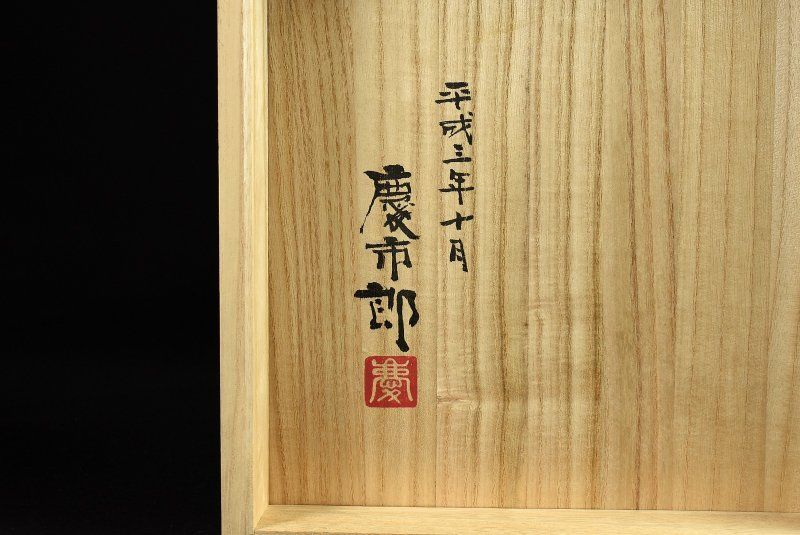 平成三年十月
慶市郎
慶